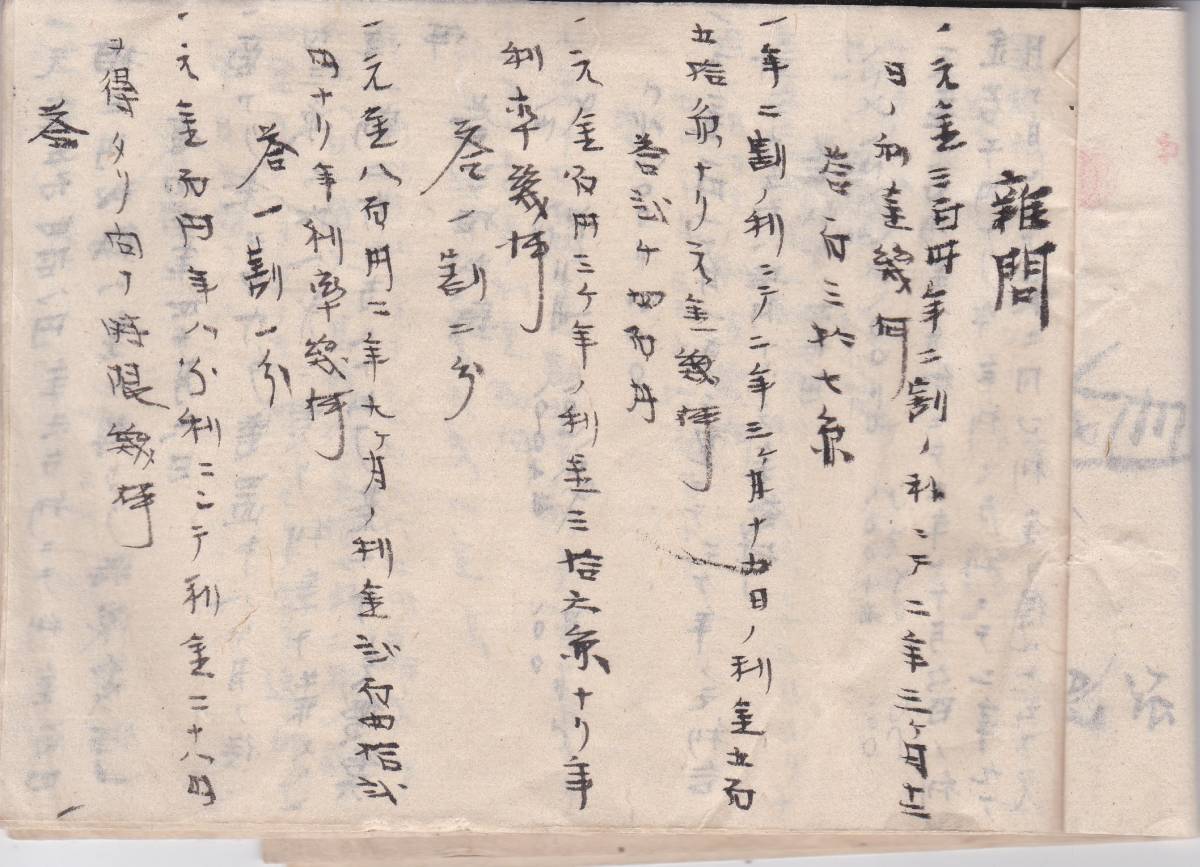 雑問
一元金三百円年二割ノ利ニテ二年三ケ月十二
日ノ利金幾何
答百三拾七条
一年二割ノ利ニテ二年三ケ月十五日ノ利金五百
五拾条ナリ元金幾何
答弐千四百円
一元金百円三ケ年ノ利金三拾六条ナリ年
利率幾何
答一割二分
一元金八百円二年九ケ月ノ利金弐百四拾弐
円ナリ年利率幾何
答一割一分
一元金百円年八分利ニシテ利金二十八円
ヲ得タリ向フ時限幾何
答